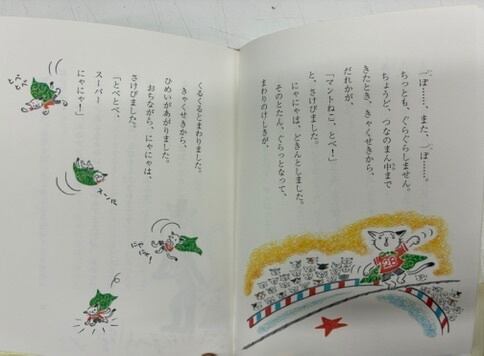 「ぽ……、また、「ぽ……。
ちっとも、ぐらぐらしません。
ちょうど、つなのまん中まで
きたとき、きゃくせきから、
だれかが、
「マントねこ、とべ！」
と、さけびました。
にゃにゃは、どきんとしました。
そのとたん、ぐらっとなって、
まわりのけしきが、
くるくるとまわりました。
きゃくせきから、
ひめいがあがりました。
おちながら、にゃにゃは、
さけびました。
「とべとべ、
スーパー
にゃにゃー！」
にゃにゃー！